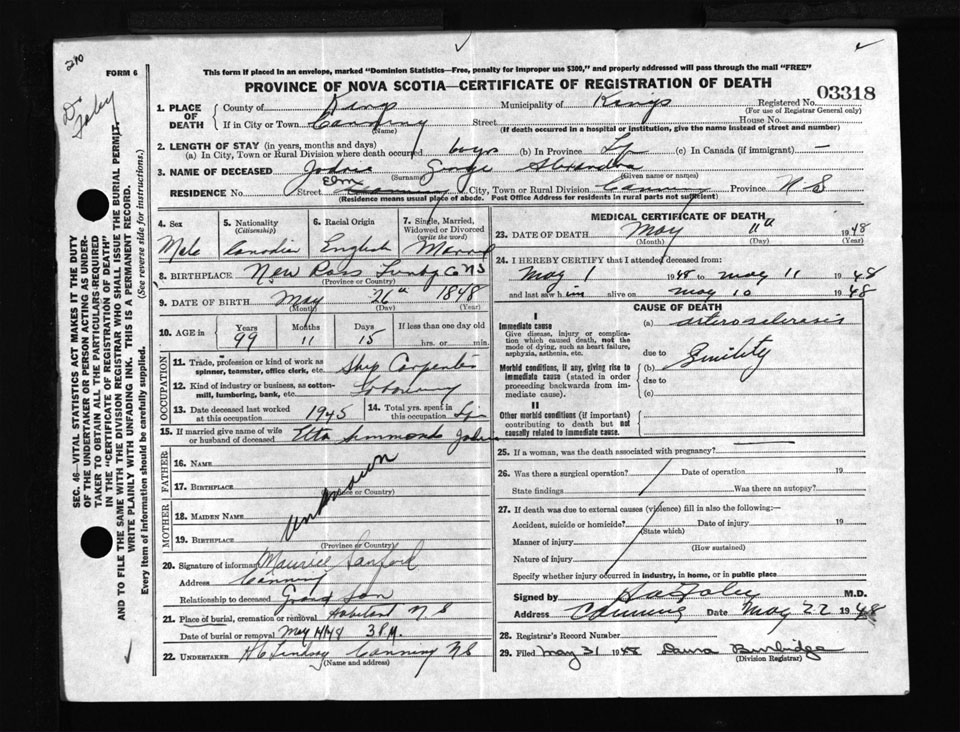 240
FORM 6
This form if placed in an envelope, marked "Dominion Statistics—Free, penalty for improper use $300," and properly addressed will pass through the mail "FREE"
PROVINCE OF NOVA SCOTIA—CERTIFICATE OF REGISTRATION OF DEATH
03318
Dr Foley
SEC. 46—VITAL STATISTICS ACT MAKES IT THE DUTY
OF THE UNDERTAKER OR PERSON ACTING AS UNDER-
TAKER TO OBTAIN ALL THE PARTICULARS REQUIRED
IN THE "CERTIFICATE OF REGISTRATION OF DEATH"
AND TO FILE THE SAME WITH THE DIVISION REGISTRAR WHO SHALL ISSUE THE BURIAL PERMIT.
WRITE PLAINLY WITH UNFADING INK. THIS IS A PERMANENT RECORD.
Every item of information should be carefully supplied. (See reverse side for instructions.)
1. PLACE OF DEATH County of Kings Municipality of Kings Registered No.
(For use of Registrar General only)
If in City or Town Canning Street House No.
(Name) (If death occurred in a hospital or institution, give the name instead of street and number)
2. LENGTH OF STAY (in years, months and days)
(a) In City, Town or Rural Division where death occurred 60 yrs (b) In Province Life (c) In Canada (if immigrant) —
3. NAME OF DECEASED Jodrie George
(Surname) (Given name or names)
RESIDENCE No. Street Elm City, Town or Rural Division Canning Province N S
(Residence means usual place of abode. Post Office Address for residents in rural parts not sufficient)
4. Sex Male
5. Nationality (Citizenship) Canadian
6. Racial Origin English
7. Single, Married, Widowed or Divorced (write the word) Married
8. BIRTHPLACE New Ross Lunbg Co NS
(Province or Country)
9. DATE OF BIRTH May 26th 1848
(Month) (Day) (Year)
10. AGE in Years 99 Months 11 Days 15 If less than one day old
hrs. or min.
OCCUPATION
11. Trade, profession or kind of work as spinner, teamster, office clerk, etc. Ship Carpenter
12. Kind of industry or business, as cotton-mill, lumbering, bank, etc.
13. Date deceased last worked at this occupation 1945
14. Total yrs. spent in this occupation Life
15. If married give name of wife or husband of deceased Etta Simmonds Jodrie
FATHER
16. NAME
17. BIRTHPLACE
(Province or Country)
unknown
MOTHER
18. MAIDEN NAME
19. BIRTHPLACE
(Province or Country)
20. Signature of informant Maurice Sanford
Address Canning
Relationship to deceased Grand Son
21. Place of burial, cremation or removal N S
Date of burial or removal May 14/48 3 P.M.
22. UNDERTAKER H C Lindsay Canning N S
(Name and address)
MEDICAL CERTIFICATE OF DEATH
23. DATE OF DEATH May 11th 1948
(Month) (Day) (Year)
24. I HEREBY CERTIFY that I attended deceased from
May 1 1948 to May 11 1948
and last saw him alive on May 10 1948
CAUSE OF DEATH
I
Immediate cause
Give disease, injury or complica-
tion which caused death, not the
mode of dying, such as heart failure,
asphyxia, asthenia, etc.
(a) arterosclerosis
due to
Morbid conditions, if any, giving rise to
immediate cause (stated in order
proceeding backwards from im-
mediate cause).
(b) Senility
due to
(c)
II
Other morbid conditions (if important)
contributing to death but not
causally related to immediate cause.
25. If a woman, was the death associated with pregnancy?
26. Was there a surgical operation? Date of operation 19
State findings Was there an autopsy?
27. If death was due to external causes (violence) fill in also the following:—
Accident, suicide or homicide? Date of injury 19
(State which)
Manner of injury
(How sustained)
Nature of injury
Specify whether injury occurred in industry, in home, or in public place
Signed by Foley M.D.
Address Canning Date May 22 1948
28. Registrar's Record Number
29. Filed May 31 1948 Laura Burbidge
(Division Registrar)